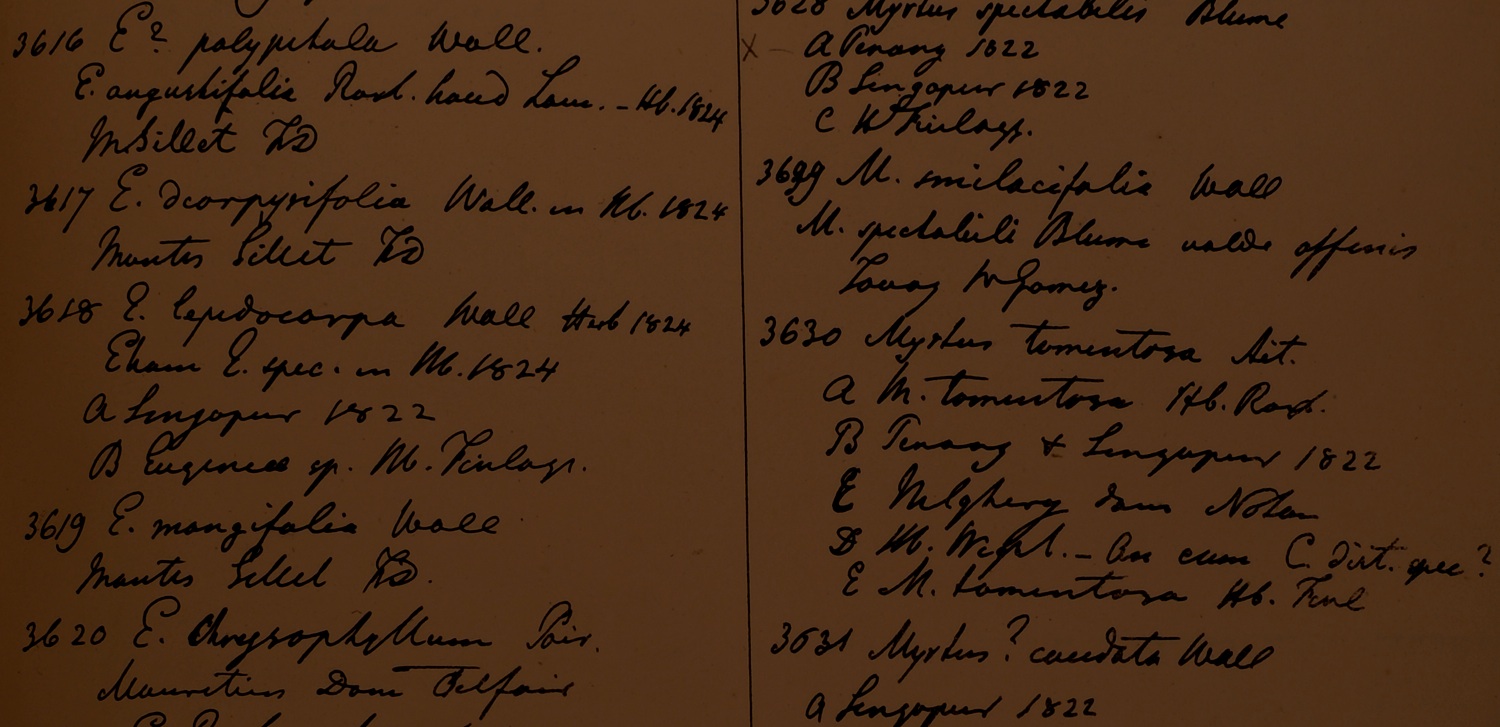 3616 E? polypetala Wall.
E. angustifolia Roxb. haud Lam. - Hb. 1824
M Sillet FD
3617 E. Wall. in Hb. 1824
Montes Sillet FD
3618 E. lepidocarpa Wall Herb 1824
E. spec. in Hb. 1824
A Singapur 1822
B Eugeniae sp. Hb. Finlays.
3619 E. mangifolia Wall
Montes Sillet FD.
3620 E. Chrysophyllum Poir.
Mauritius Dom Telfair
3628 Myrtus spectabilis Blume
X - A Penang 1822
B Singapur 1822
C Hb Finlays.
3629 M. smilacifolia Wall
M. spectabili Blume valde affinis
Tavoy W Gomez.
3630 Myrtus tomentosa Ait.
A M. tomentosa Hb. Roxb.
B Penang & Singapur 1822
E Nilghery dom Noton
D Hb. Wight. - An cum C. dist. spec?
E M. tomentosa Hb. Finl
3631 Myrtus? caudata Wall
A Singapur 1822